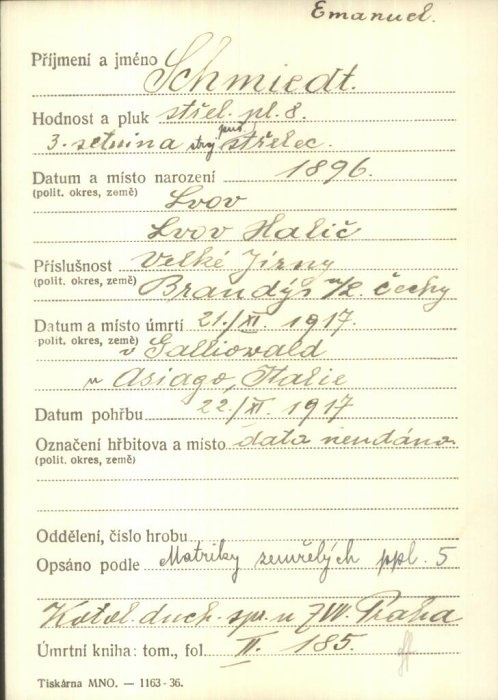 Emanuel.
Příjmení a jméno Schmiedt.
Hodnost a pluk střel. pl. 8.
3. setnina střelec.
Datum a místo narození 1896.
(polit. okres, země) Lvov
Lvov Halič
Příslušnost Velké Jirny
(polit. okres, země) Brandýs n/L. Čechy
Datum a místo úmrtí 21./XI. 1917.
polit. okres, země) v Galliowald
u Asiago, Italie
Datum pohřbu 22/XI. 1917
Označení hřbitova a místo data neudána
(polit. okres, země)
Oddělení, číslo hrobu
Opsáno podle Matriky zemřelých ppl. 5
Katol. duch. spr. u ZVV. Praha
Úmrtní kniha: tom., fol. II. 185.
Tiskárna MNO. — 1163-36.